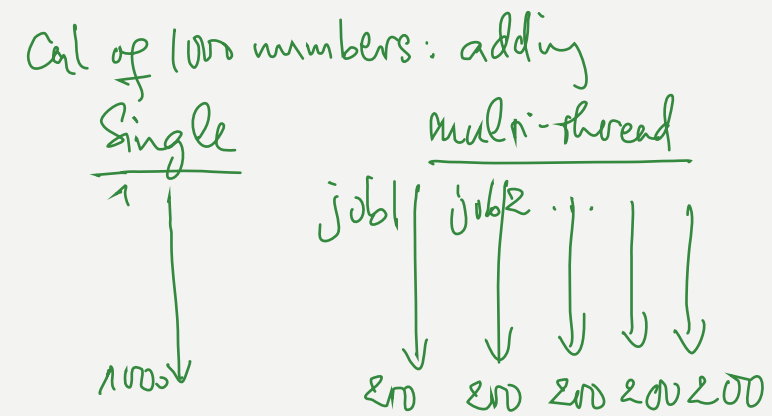 Cal of 1000 numbers: adding
Single multi-thread
1 job1 job2 ...
1000 200 200 200 200 200